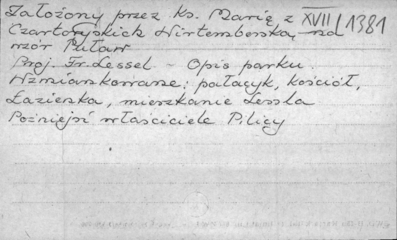 Założony przez Ks. Marię z XVII/1381
Czartoryskich Wirtemberską na
wzór Puław
Proj. Fr. Lessel - Opis parku.
Wzmiankowane: pałacyk, kościół,
Łazienka, mieszkanie Lessla
Poźniejsi właściciele Pilicy